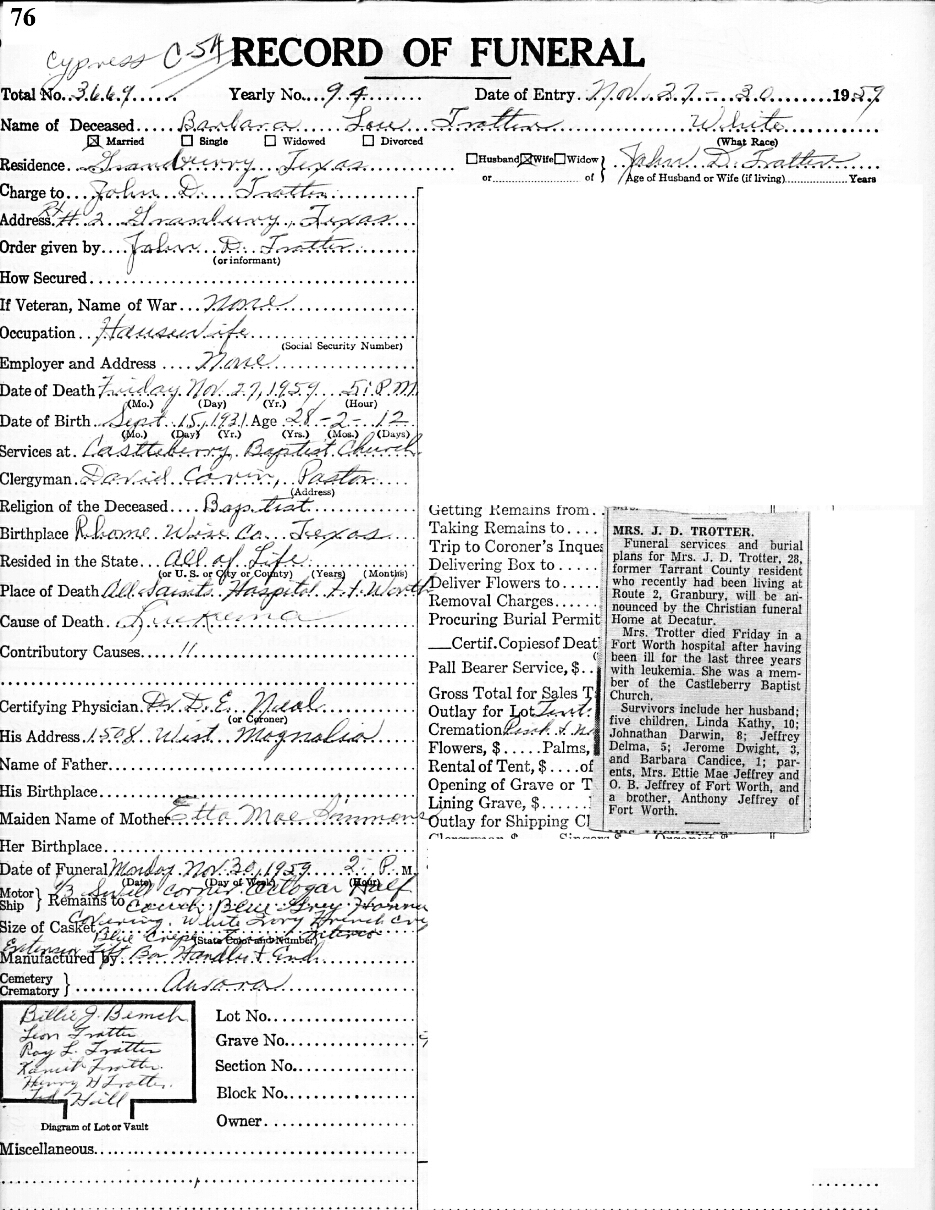 76
Cypress C-54
RECORD OF FUNERAL
Total No. 3669 Yearly No. 94 Date of Entry Nov. 27-30 1959
Name of Deceased Barbara Lou Trotter White
Married Single Widowed Divorced (What Race)
Residence Grandburry Texas Husband Wife Widow } John D. Trotter
or of } Age of Husband or Wife (if living) Years
Charge to John D. Trotter
Address Rt # 2 Granbury, Texas
Order given by John D. Trotter
(or informant)
How Secured
If Veteran, Name of War None
Occupation Housewife
(Social Security Number)
Employer and Address None
Date of Death Friday Nov. 27, 1959 5: P.M.
(Mo.) (Day) (Yr.) (Hour)
Date of Birth Sept. 15, 1931 Age 28-2-12
(Mo.) (Day) (Yr.) (Yrs.) (Mos.) (Days)
Services at Castleberry Baptist Church
Clergyman David Pastor
(Address)
Religion of the Deceased Baptist
Birthplace Rhome Wise Co. Texas
Resided in the State All of Life
(or U. S. or City or County) (Years) (Months)
Place of Death All Saints Hospital Ft Worth
Cause of Death Leukemia
Contributory Causes 11
Certifying Physician Dr. D. E. Neal
(or Coroner)
His Address 1508 West Magnolia
Name of Father
His Birthplace
Maiden Name of Mother Etta Mae Simmons
Her Birthplace
Date of Funeral Monday Nov. 30, 1959 2: P. M
(Date) (Day of Week) (Hour)
Motor
Ship } Remains to 6/3 corner Half
Couch Blue Grey
Size of Casket Covering White French
Blue Crepe
(State Color and Number)
Manufactured by Extension Bar Handles & End
Cemetery
Crematory } Aurora
Billie J.
Leon Trotter
Roy L. Trotter
Trotter
Henry H Trotter
Hill
Diagram of Lot or Vault
Lot No.
Grave No.
Section No.
Block No.
Owner
Miscellaneous
Getting Remains from
Taking Remains to
Trip to Coroner's Inques
Delivering Box to
Deliver Flowers to
Removal Charges
Procuring Burial Permit
Certif. Copies of Deat
Pall Bearer Service, $
Gross Total for Sales T
Outlay for Lot Tent
Cremation
Flowers, $ Palms,
Rental of Tent, $ of
Opening of Grave or T
Lining Grave, $
Outlay for Shipping Cl
MRS. J. D. TROTTER.
Funeral services and burial
plans for Mrs. J. D. Trotter, 28,
former Tarrant County resident
who recently had been living at
Route 2, Granbury, will be an-
nounced by the Christian funeral
Home at Decatur.
Mrs. Trotter died Friday in a
Fort Worth hospital after having
been ill for the last three years
with leukemia. She was a mem-
ber of the Castleberry Baptist
Church.
Survivors include her husband;
five children, Linda Kathy, 10;
Johnathan Darwin, 8; Jeffrey
Delma, 5; Jerome Dwight, 3,
and Barbara Candice, 1; par-
ents, Mrs. Ettie Mae Jeffrey and
O. B. Jeffrey of Fort Worth, and
a brother, Anthony Jeffrey of
Fort Worth.